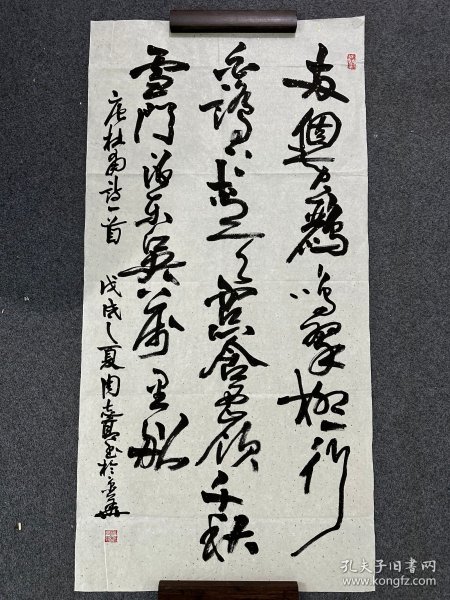 两個黄鹂鳴翠柳一行
白鹭上青天窓含西岭千秋
雪門泊東吴萬里船
唐杜甫诗一首 戊戌之夏周志高书於
孔夫子旧书网
www.kongfz.com